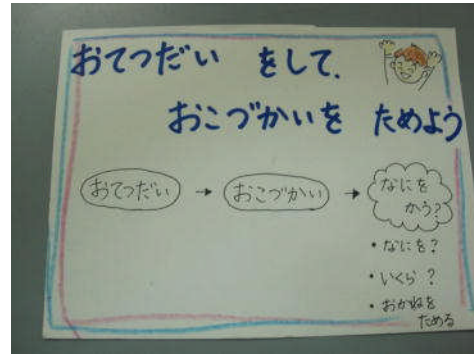 おてつだい をして.
おこづかいを ためよう
おてつだい → おこづかい → なにを
かう?
・なにを?
・いくら?
・おかねを
ためる